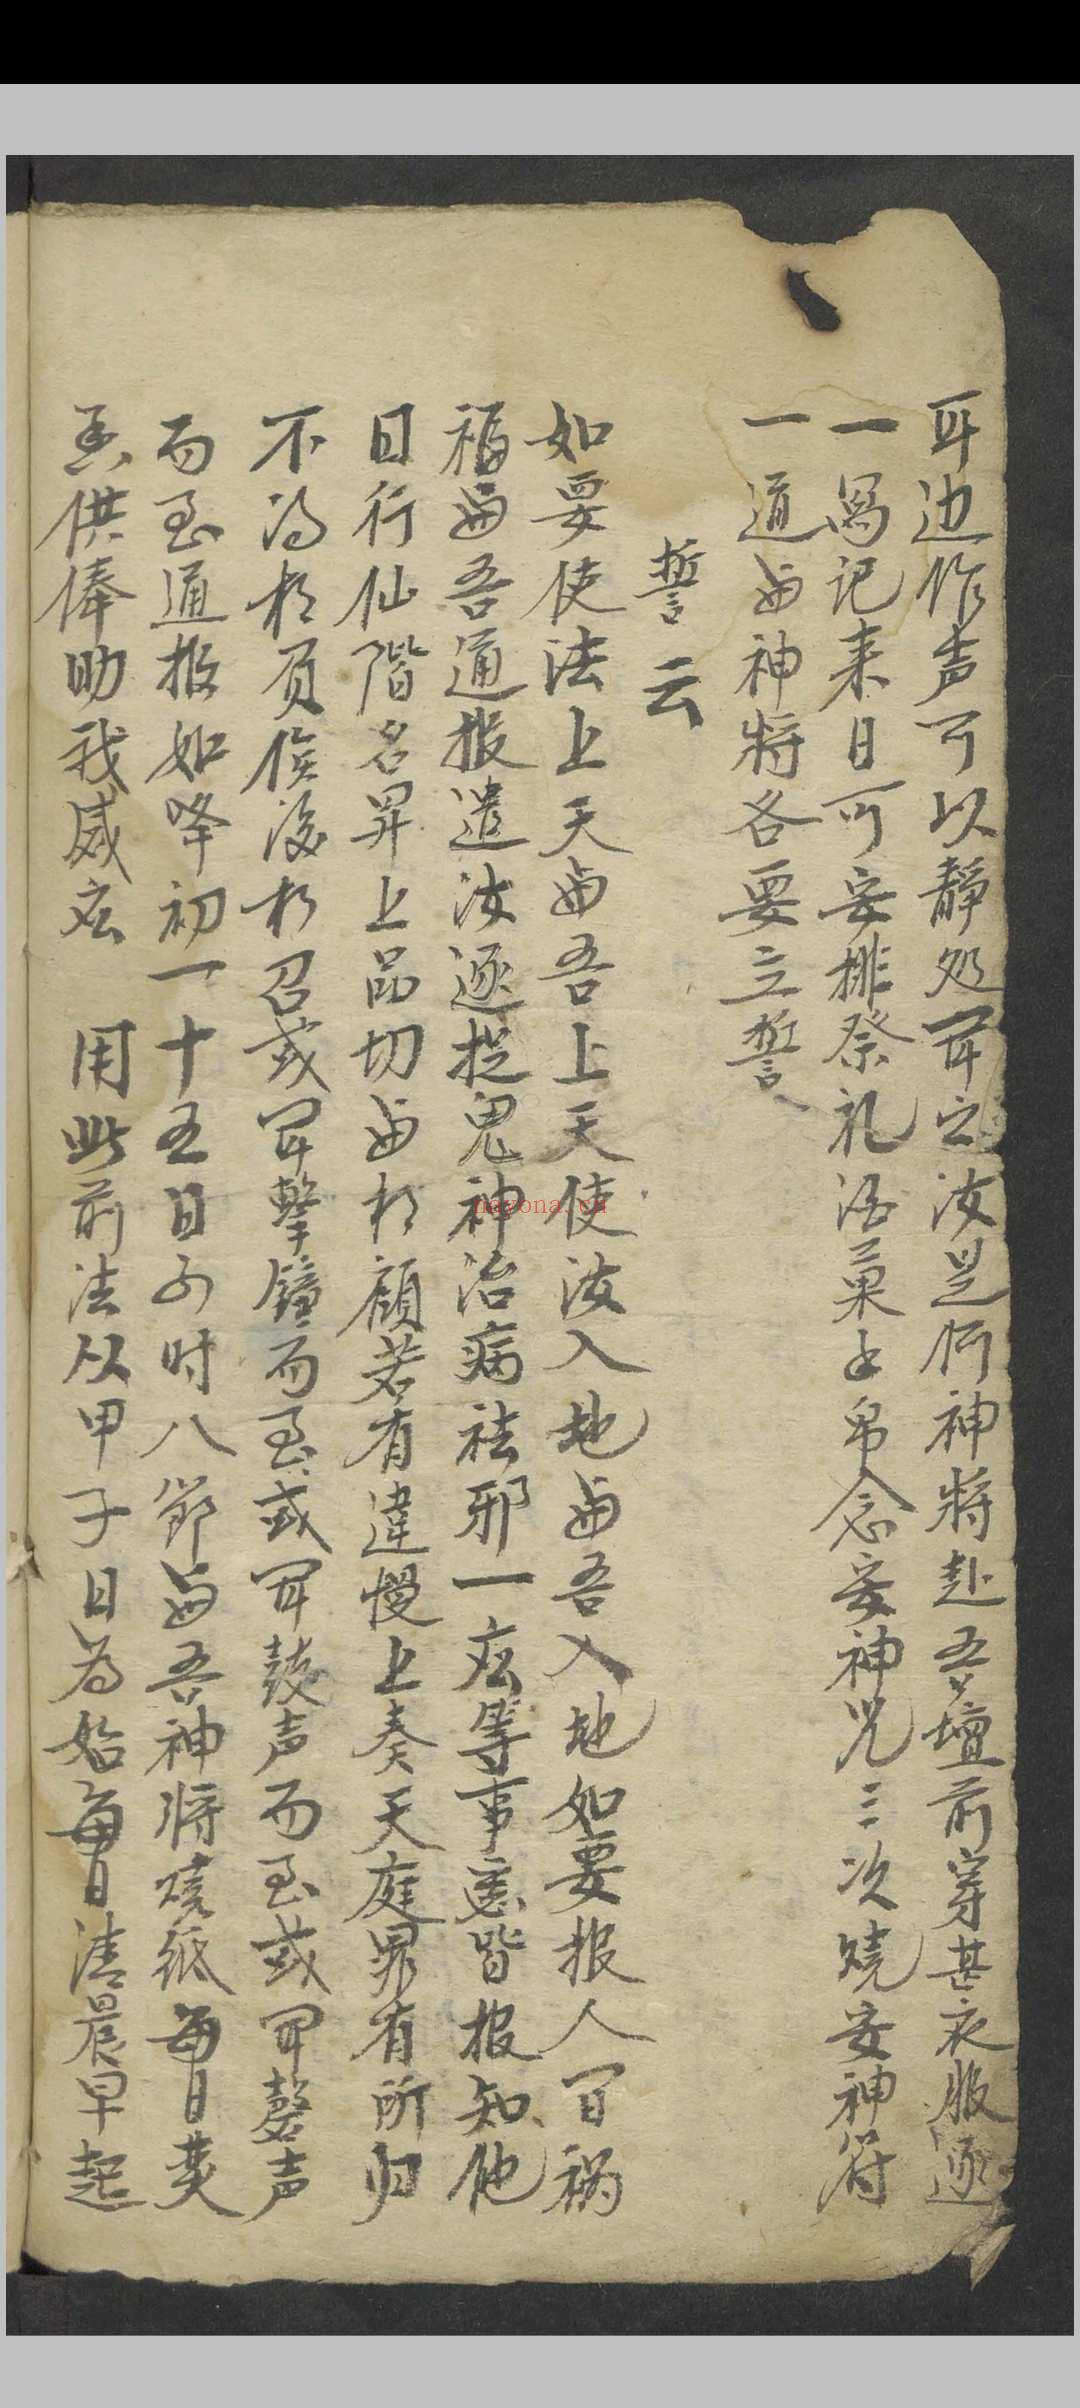 耳边作声可以静処问之汝是何神将赴吾壇前穿甚衣服逐
一写记来日可安排祭礼酒菓予帛念安神咒三次烧安神符
一道与神将各要立誓
誓云
如要使法上天与吾上天使汝入地与吾入地如要报人间祸
福与吾通报遣汝逐捉鬼神治病祛邪一应等事悉皆报知他
日行仙階名昇上品切与相顧若有違慢上奏天庭罪有所归
不得相負侯後相召或闻擊鐘而至或闻鼓声而至或闻磬声
而至通报如降初一十五日四时八節与吾神将烧纸每日焚
香供俸助我威应 用此前法从甲子日为始每日清晨早起
nayona.cn